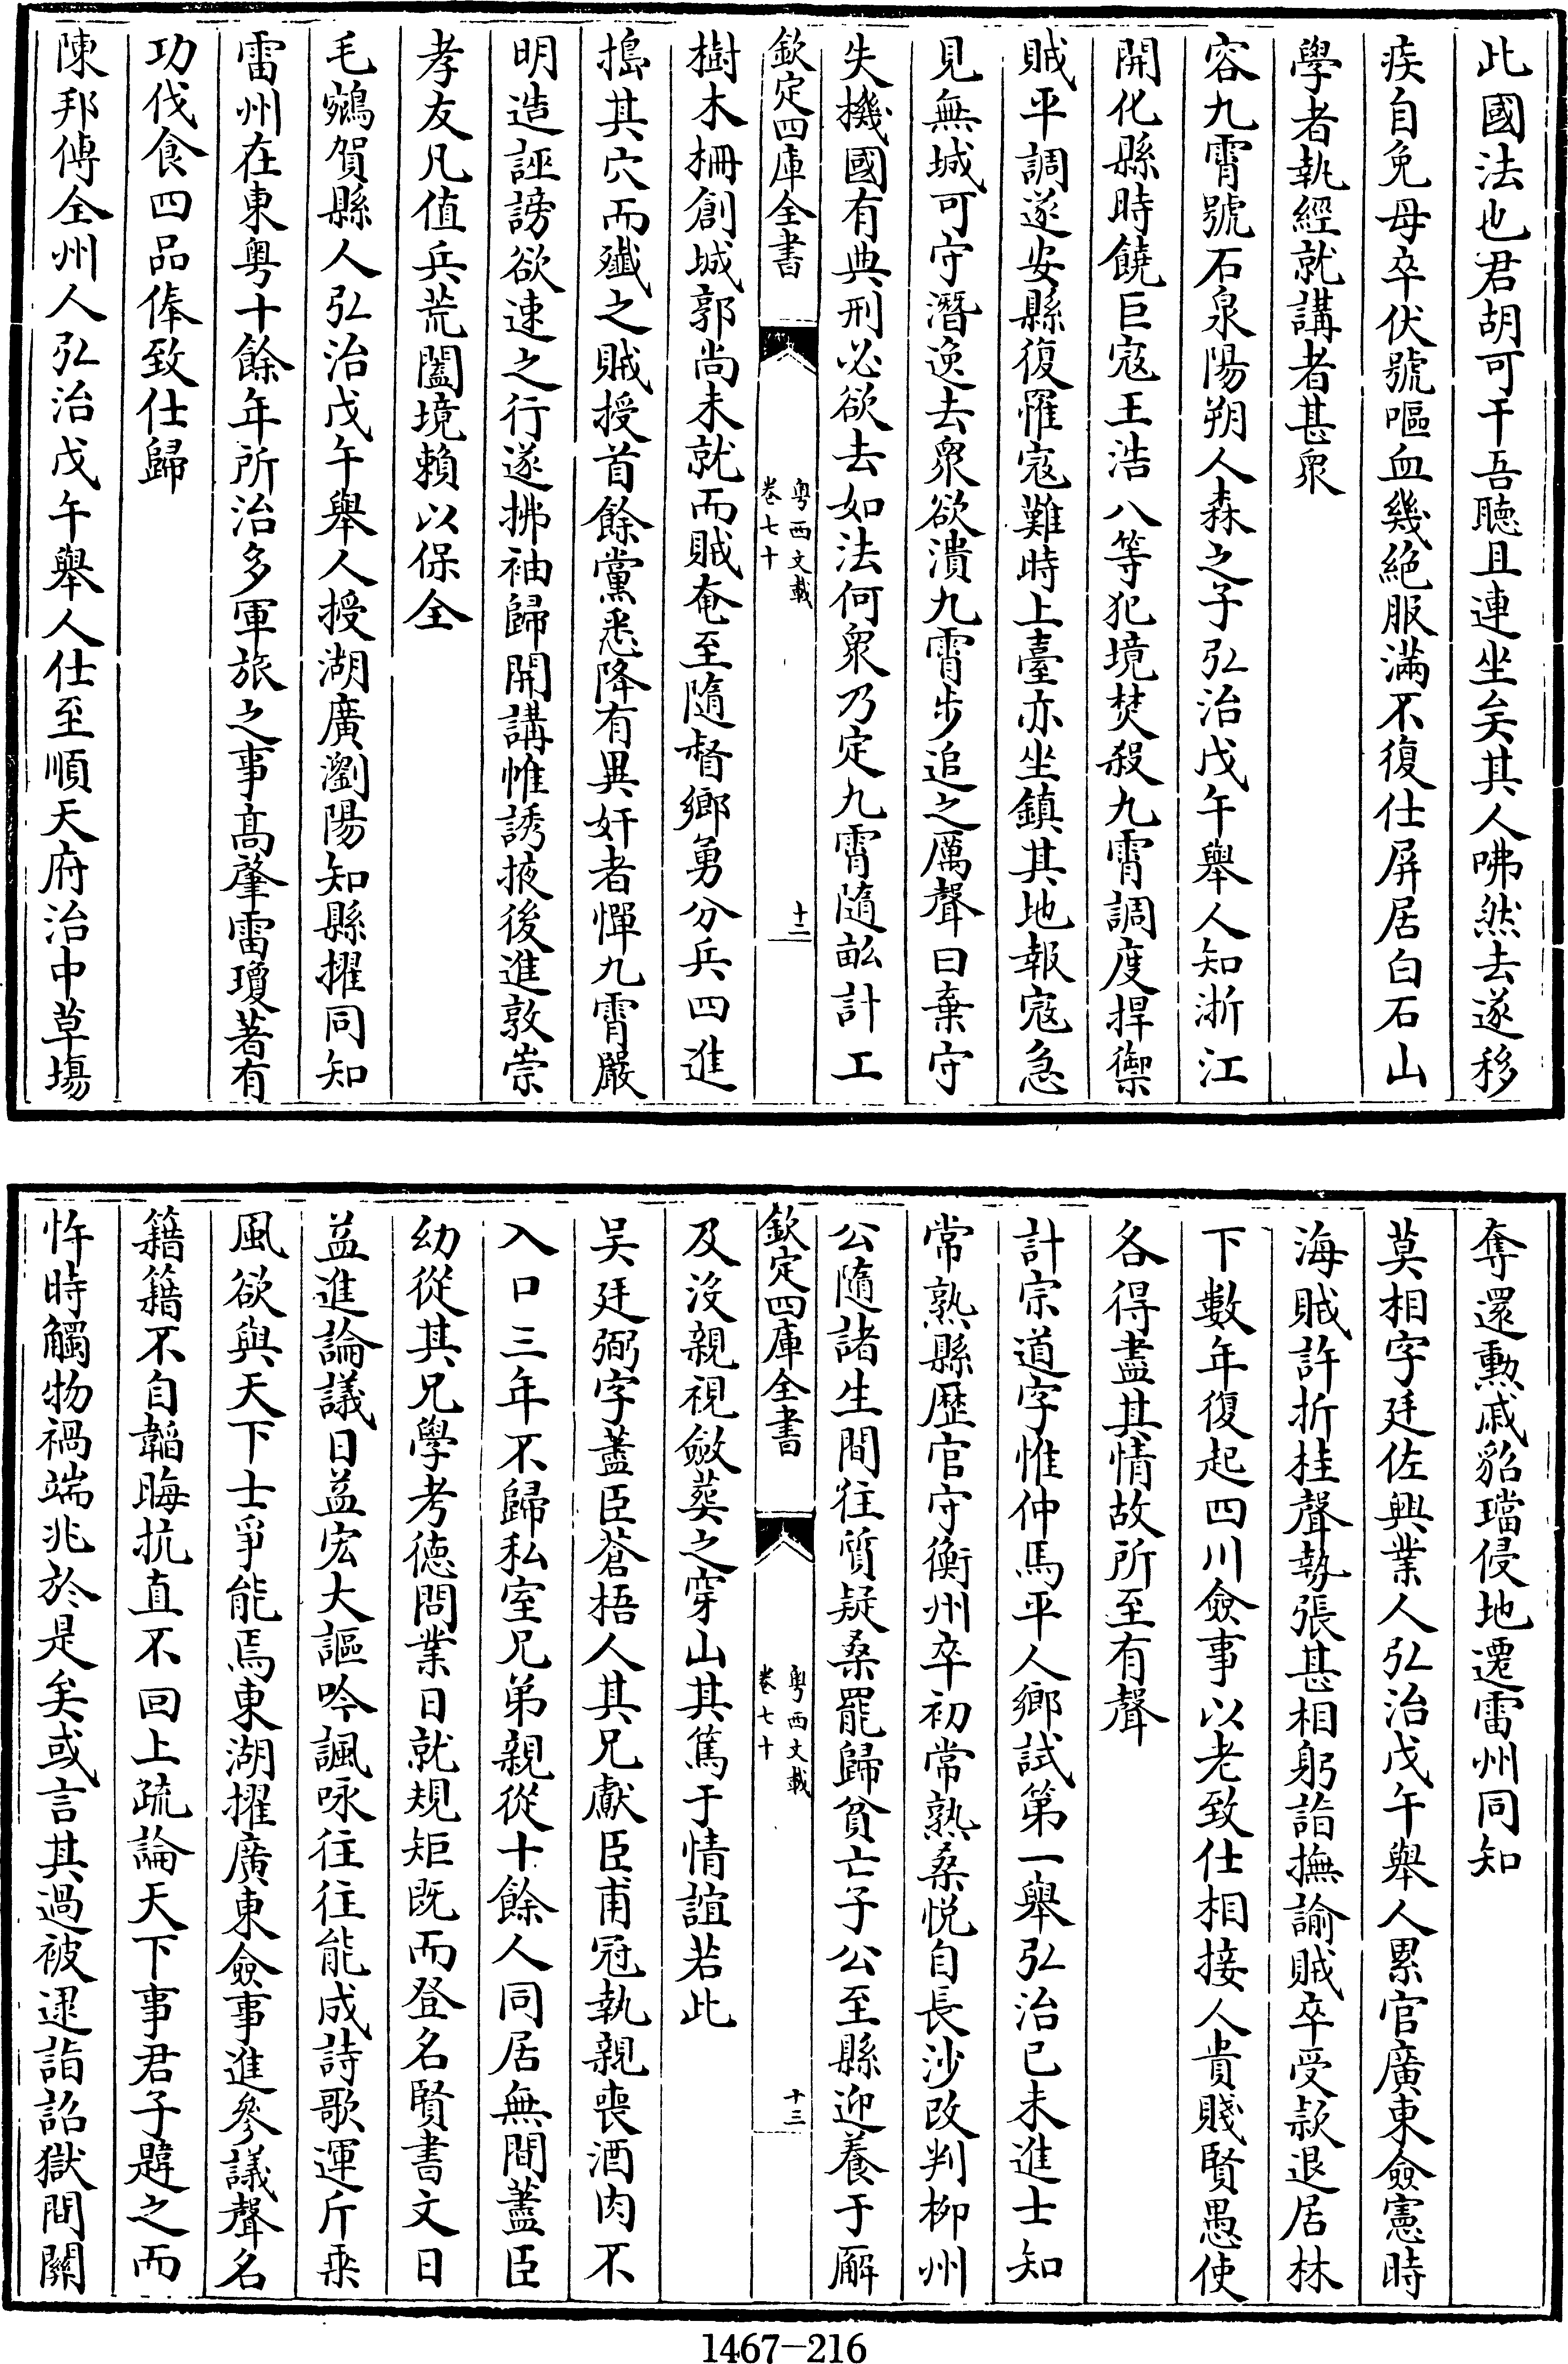 此國法也君胡可干吾聽且連坐矣其人咈然去遂移
疾自免母卒伏號嘔血幾絶服滿不復仕屏居白石山
學者執經就講者甚衆
容九霄號石泉陽朔人森之子弘治戊午舉人知浙江
開化縣時饒巨寇王浩八等犯境焚殺九霄調度捍禦
賊平調遂安縣復罹寇難時上臺亦坐鎮其地報寇急
見無城可守潛逸去衆欲潰九霄步追之厲聲曰棄守
失機國有典刑必欲去如法何衆乃定九霄隨畝計工
欽定四庫全書
粤西文載
卷七十
十二
樹木柵創城郭尚未就而賊奄至隨督鄉勇分兵四進
搗其穴而殲之賊授首餘黨悉降有異奸者憚九霄嚴
明造誣謗欲速之行遂拂袖歸開講惟誘掖後進敦崇
孝友凡值兵荒闔境賴以保全
毛鵷賀縣人弘治戊午舉人授湖廣瀏陽知縣擢同知
雷州在東粤十餘年所治多軍旅之事髙肇雷瓊著有
功伐食四品俸致仕歸
陳邦傅全州人弘治戊午舉人仕至順天府治中草塲
奪還勲戚貂璫侵地遷雷州同知
莫相字廷佐興業人弘治戊午舉人累官廣東僉憲時
海賊許折桂聲勢張甚相躬詣撫諭賊卒受款退居林
下數年復起四川僉事以老致仕相接人貴賤賢愚使
各得盡其情故所至有聲
計宗道字惟仲馬平人鄉試第一舉弘治己未進士知
常熟縣歴官守衡州卒初常熟桑悦自長沙改判柳州
公隨諸生間往質疑桑罷歸貧亡子公至縣迎養于廨
欽定四庫全書
粤西文載
卷七十
十三
及沒親視斂葬之穿山其篤于情誼若此
吴廷弼字藎臣蒼梧人其兄獻臣甫冠執親喪酒肉不
入口三年不歸私室兄弟親從十餘人同居無間藎臣
幼從其兄學考德問業日就規矩既而登名賢書文日
益進論議日益宏大謳吟諷咏往往能成詩歌運斤乘
風欲與天下士爭能焉東湖擢廣東僉事進參議聲名
籍籍不自韜晦抗直不回上疏論天下事君子韙之而
忤時觸物禍端兆於是矣或言其過被逮詣詔獄間關
1467-216